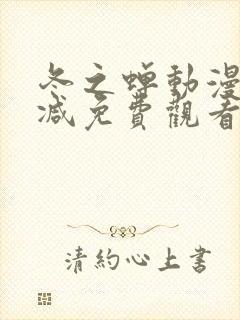 冬之蟬動漫
減免費觀看
清約心上書